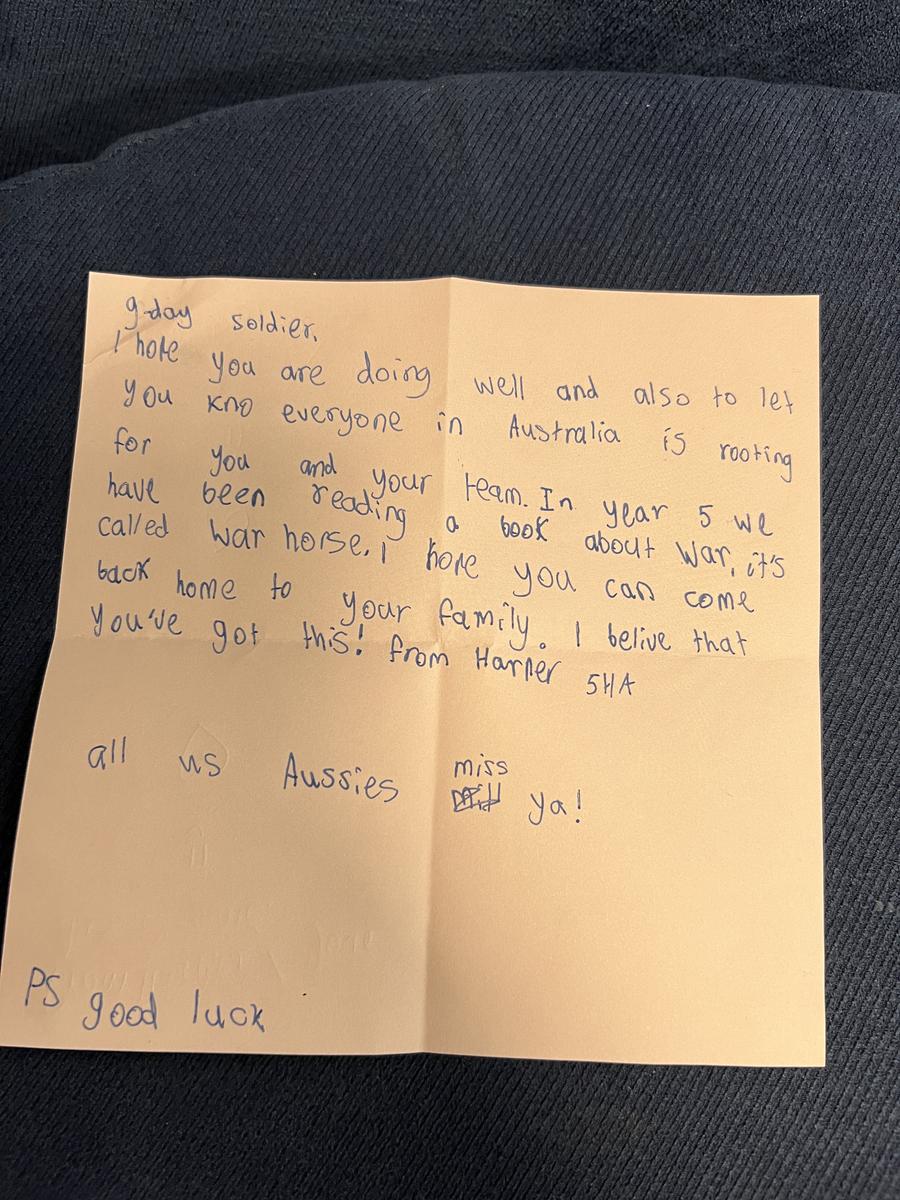 g-day soldier,
I hope you are doing well and also to let
you kno everyone in Australia is rooting
for you and your team. In year 5 we
have been reading a book about war, it's
called war horse. I hope you can come
back home to your family. I belive that
you've got this! from Harper 5HA
all us Aussies miss ya!
PS good luck